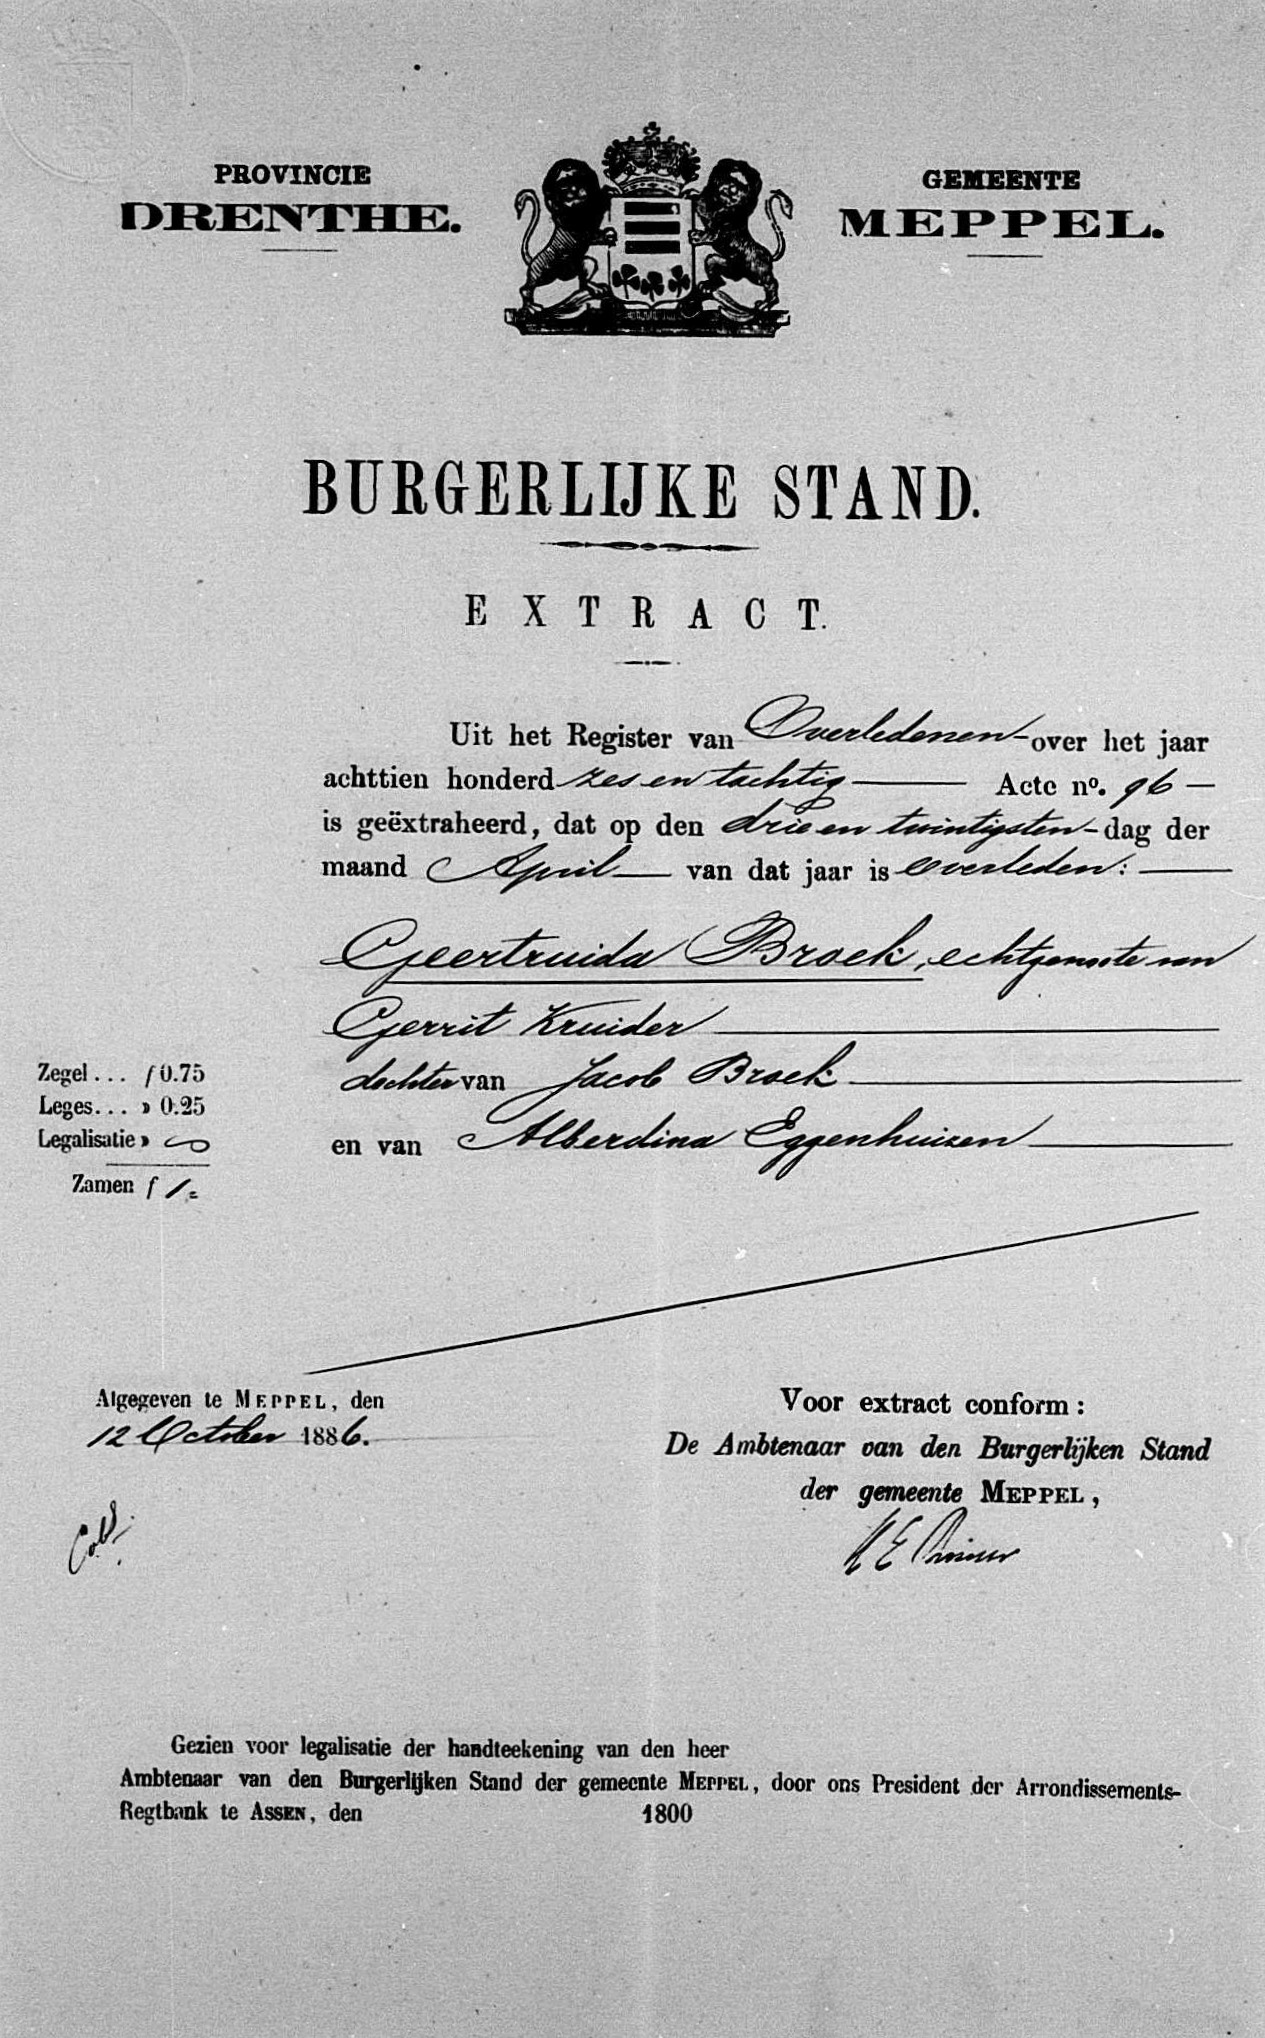 PROVINCIE
DRENTHE.
GEMEENTE
MEPPEL.
BURGERLIJKE STAND.
EXTRACT.
Uit het Register van Overledenen over het jaar
achttien honderd zes en tachtig Acte no. 96
is geëxtraheerd, dat op den drie en twintigsten dag der
maand April van dat jaar is overleden:
Geertruida Broek, echtgenoote van
Gerrit Kruider
dochter van Jacob Broek
en van Alberdina Eggenhuizen
Zegel... f 0.75
Leges... » 0.25
Legalisatie »
Zamen f 1.=
Afgegeven te MEPPEL, den
12 October 1886.
Voor extract conform:
De Ambtenaar van den Burgerlijken Stand
der gemeente MEPPEL,
Gezien voor legalisatie der handteekening van den heer
Ambtenaar van den Burgerlijken Stand der gemeente MEPPEL, door ons President der Arrondissements-
Regtbank te ASSEN, den 1800